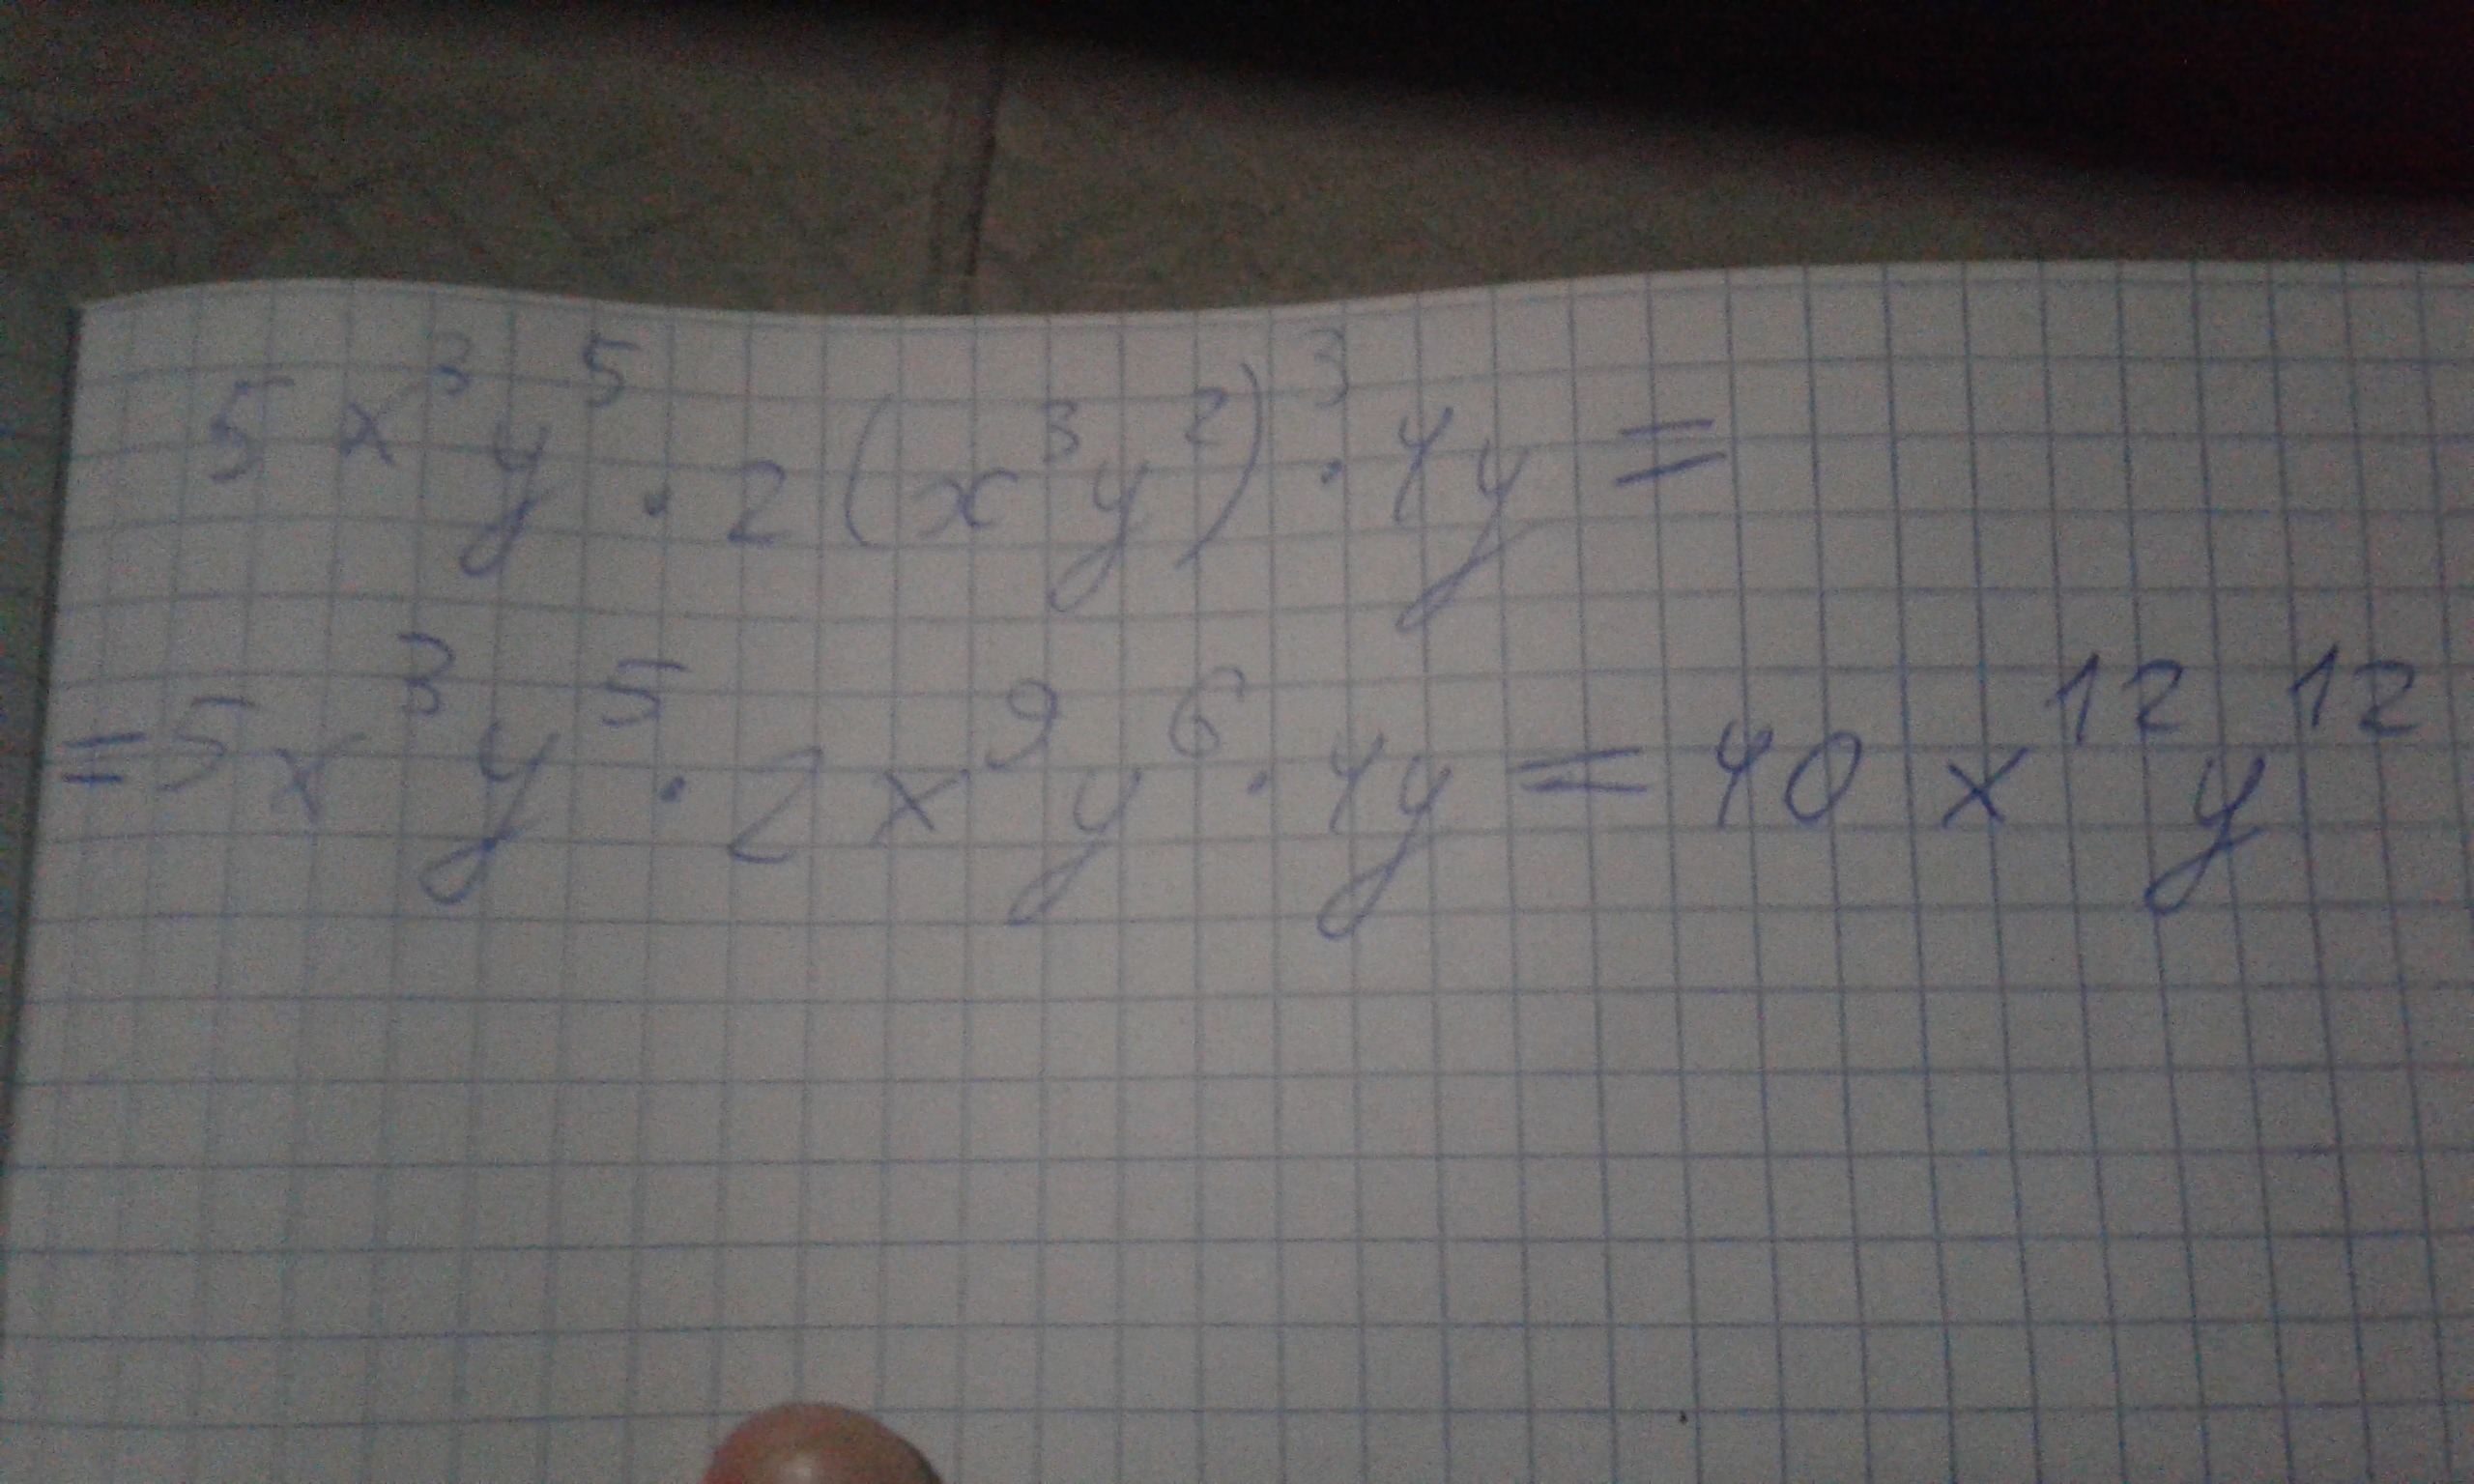 5x³y⁵ · 2(x³y²)³ · 4y =
= 5x³y⁵ · 2x⁹y⁶ · 4y = 40x¹²y¹²